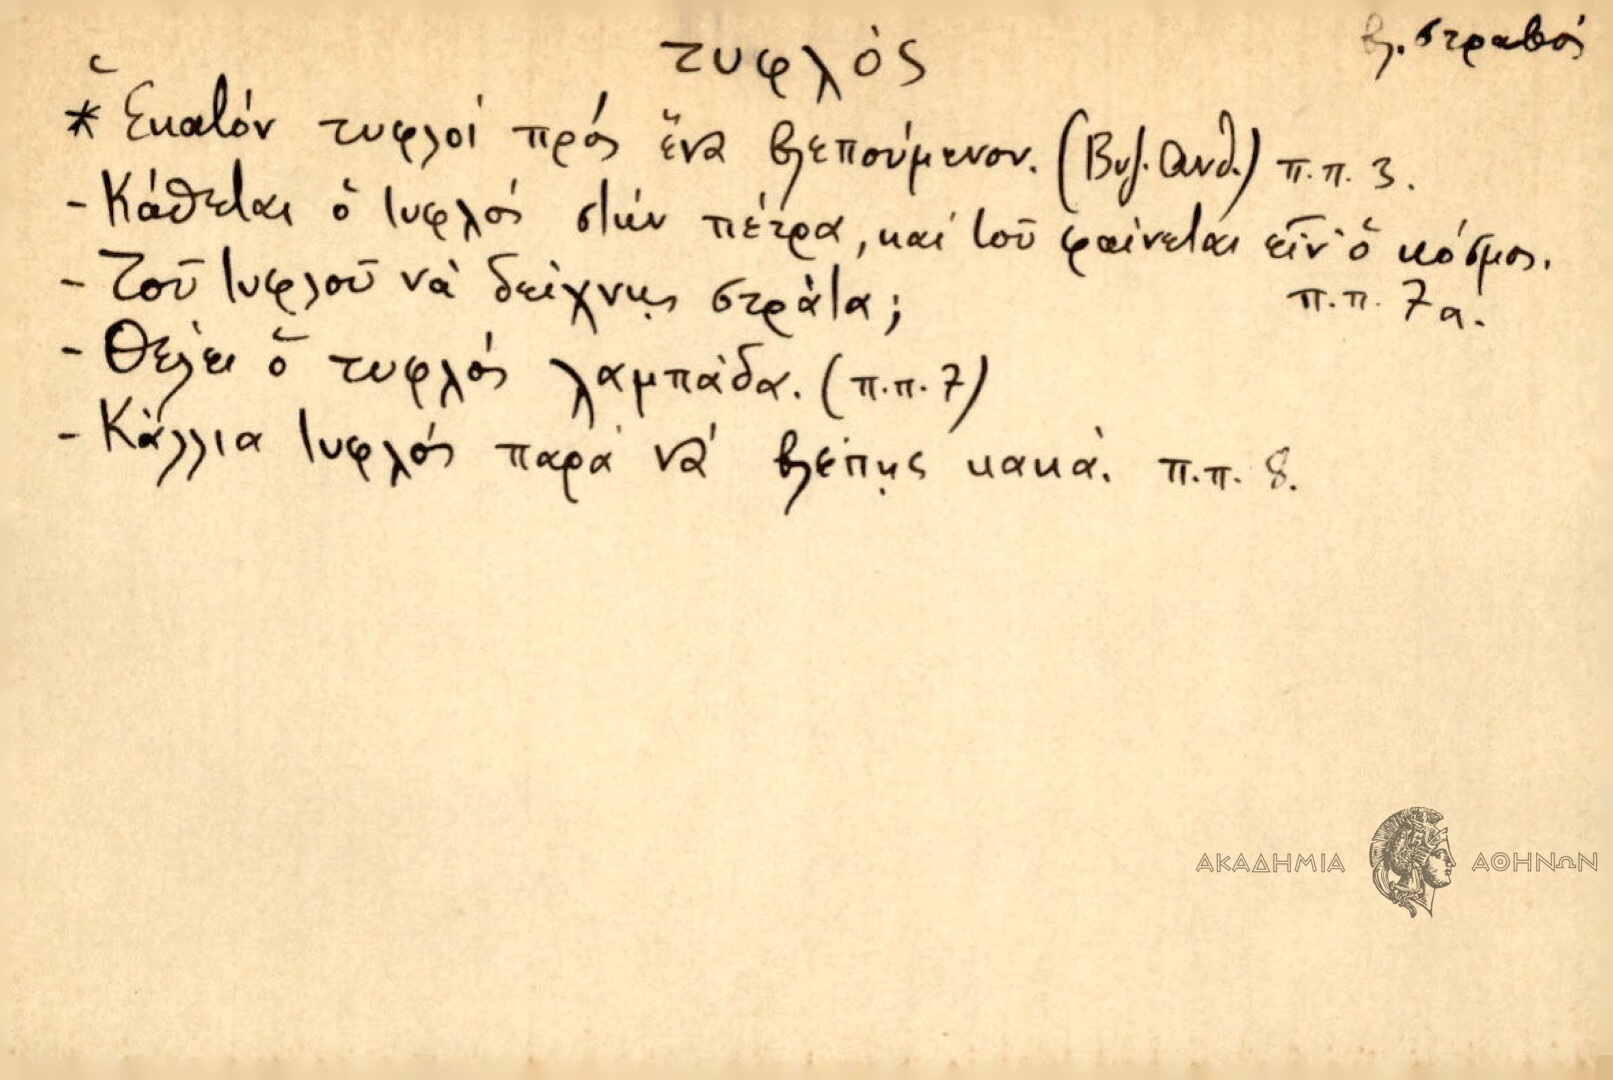 βλ. στραβός
τυφλός
* Ἑκατόν τυφλοί πρός ἕνα βλεπούμενον. (Βυζ. Ἀνθ.) π.π. 3.
- Κάθεται ὁ τυφλός στήν πέτρα, καί τοῦ φαίνεται εἶν' ὁ κόσμος.
π.π. 7α.
- Τοῦ τυφλοῦ νά δείχνῃς στράτα;
- Θέλει ὁ τυφλός λαμπάδα. (π.π. 7)
- Κάλλια τυφλός παρά νά βλέπῃς κακά. π.π. 8.
ΑΚΑΔΗΜΙΑ ΑΘΗΝΩΝ